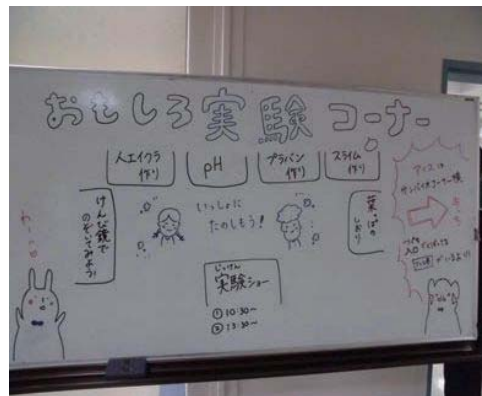 おもしろ実験コーナー
人工イクラ
作り
pH
プラバン
作り
スライム
作り
けんび鏡で
のぞいてみよう!
いっしょに
たのしもう!
葉っぱの
しおり
じっけん
実験ショー
① 10:30〜
② 13:30〜
アイスは